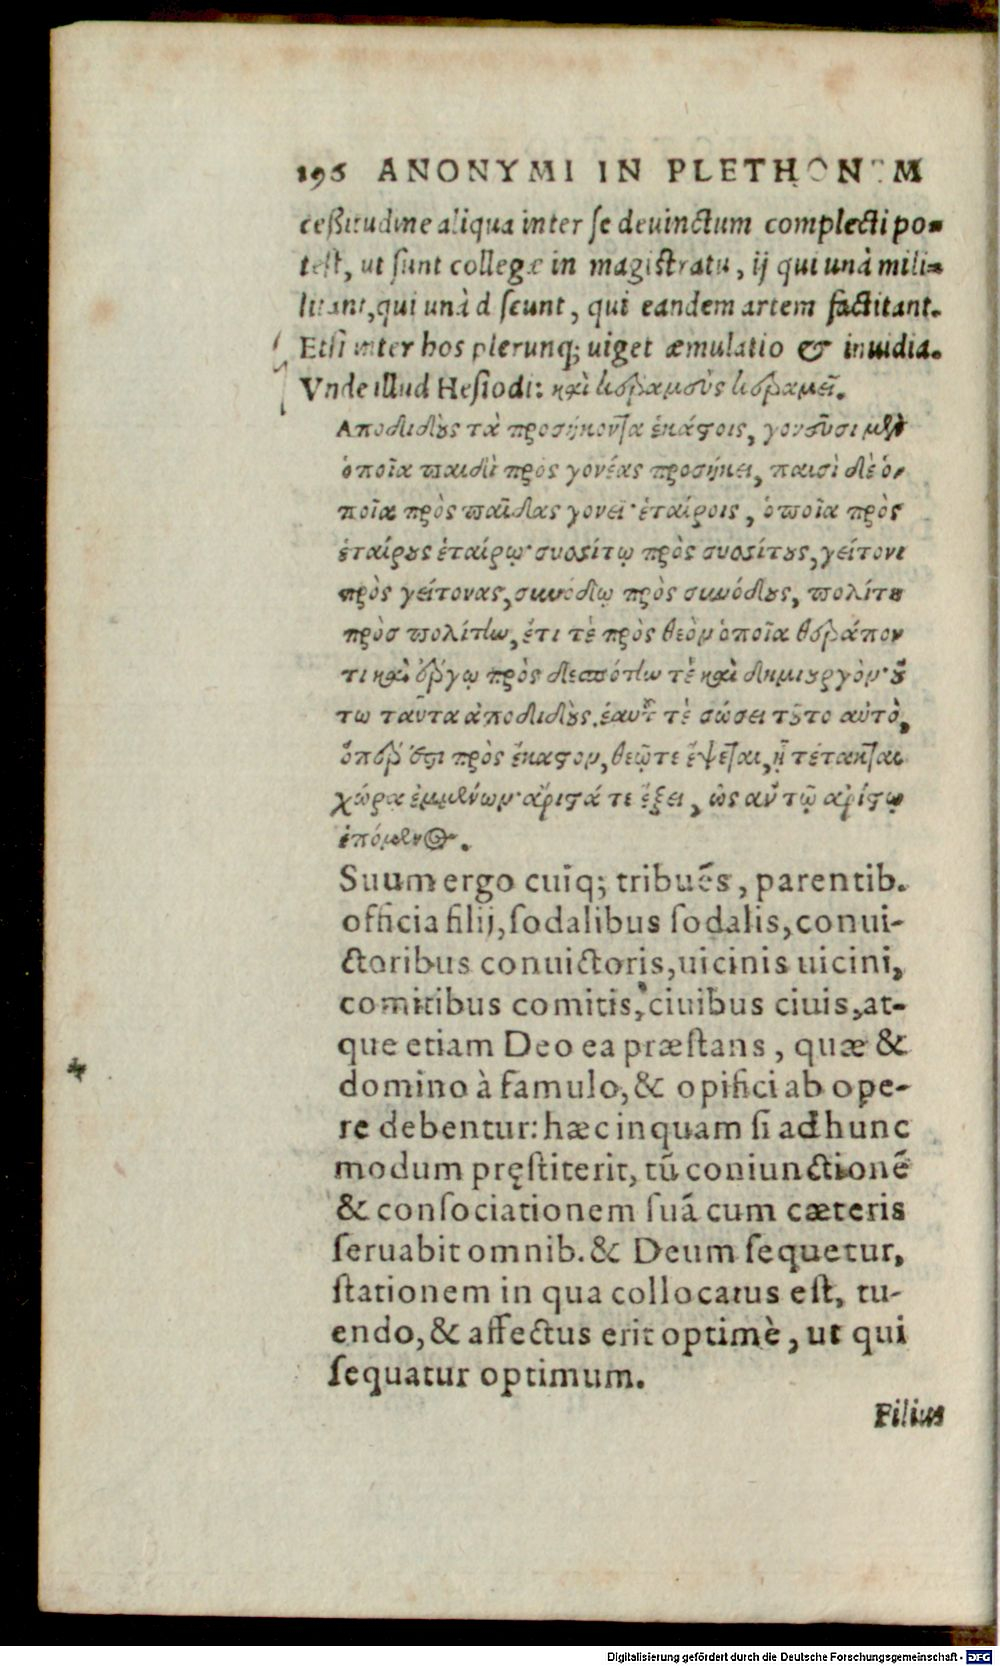 196 ANONYMI IN PLETHONEM
ceßitudine aliqua inter se deuinctum complecti po-
test, ut sunt collegæ in magistratu, ij qui unà mili-
litant, qui unà discunt, qui eandem artem factitant.
Etsi inter hos plerunq; uiget æmulatio & inuidia.
Vnde illud Hesiodi: καὶ κεραμεὺς κεραμεῖ.
Αποδιδοὺς τὰ προσήκοντα ἑκάστοις, γονεῦσι μὲν
ὁποῖα παιδὶ πρὸς γονέας προσήκει, παισὶ δὲ ὁ-
ποῖα πρὸς παῖδας γονεῖ· ἑταίροις, ὁποῖα πρὸς
ἑταίρους ἑταίρῳ· συσσίτῳ πρὸς συσσίτους, γείτονι
πρὸς γείτονας, συνόδῳ πρὸς συνόδους, πολίτῃ
πρὸσ πολίτην, ἔτι τὲ πρὸς θεὸν ὁποῖα θεράπον
τι καὶ ἔργῳ πρὸς δεσπότην τὲ καὶ δημιουργὸν· οὕ
τω ταῦτα ἀποδιδοὺς, ἑαυτῷ τὲ σώσει τοῦτο αὐτὸ,
ὅπερ ἔστι πρὸς ἕκαστον, θεῷ τε ἕψεται, ᾗ τέτακται
χώρᾳ ἐμμένων· ἄριστά τε ἕξει, ὡς ἂν τῷ ἀρίστῳ
ἑπόμενος.
Suum ergo cuiq; tribuẽs, parentib.
officia filij, sodalibus sodalis, conui-
ctoribus conuictoris, uicinis uicini,
comitibus comitis, ciuibus ciuis, at-
que etiam Deo ea præstans, quæ &
domino à famulo, & opifici ab ope-
re debentur: hæc inquam si ad hunc
modum pręstiterit, tũ coniunctionẽ
& consociationem suã cum cæteris
seruabit omnib. & Deum sequetur,
stationem in qua collocatus est, tu-
endo, & affectus erit optimè, ut qui
sequatur optimum.
Filius
Digitalisierung gefördert durch die Deutsche Forschungsgemeinschaft - DFG